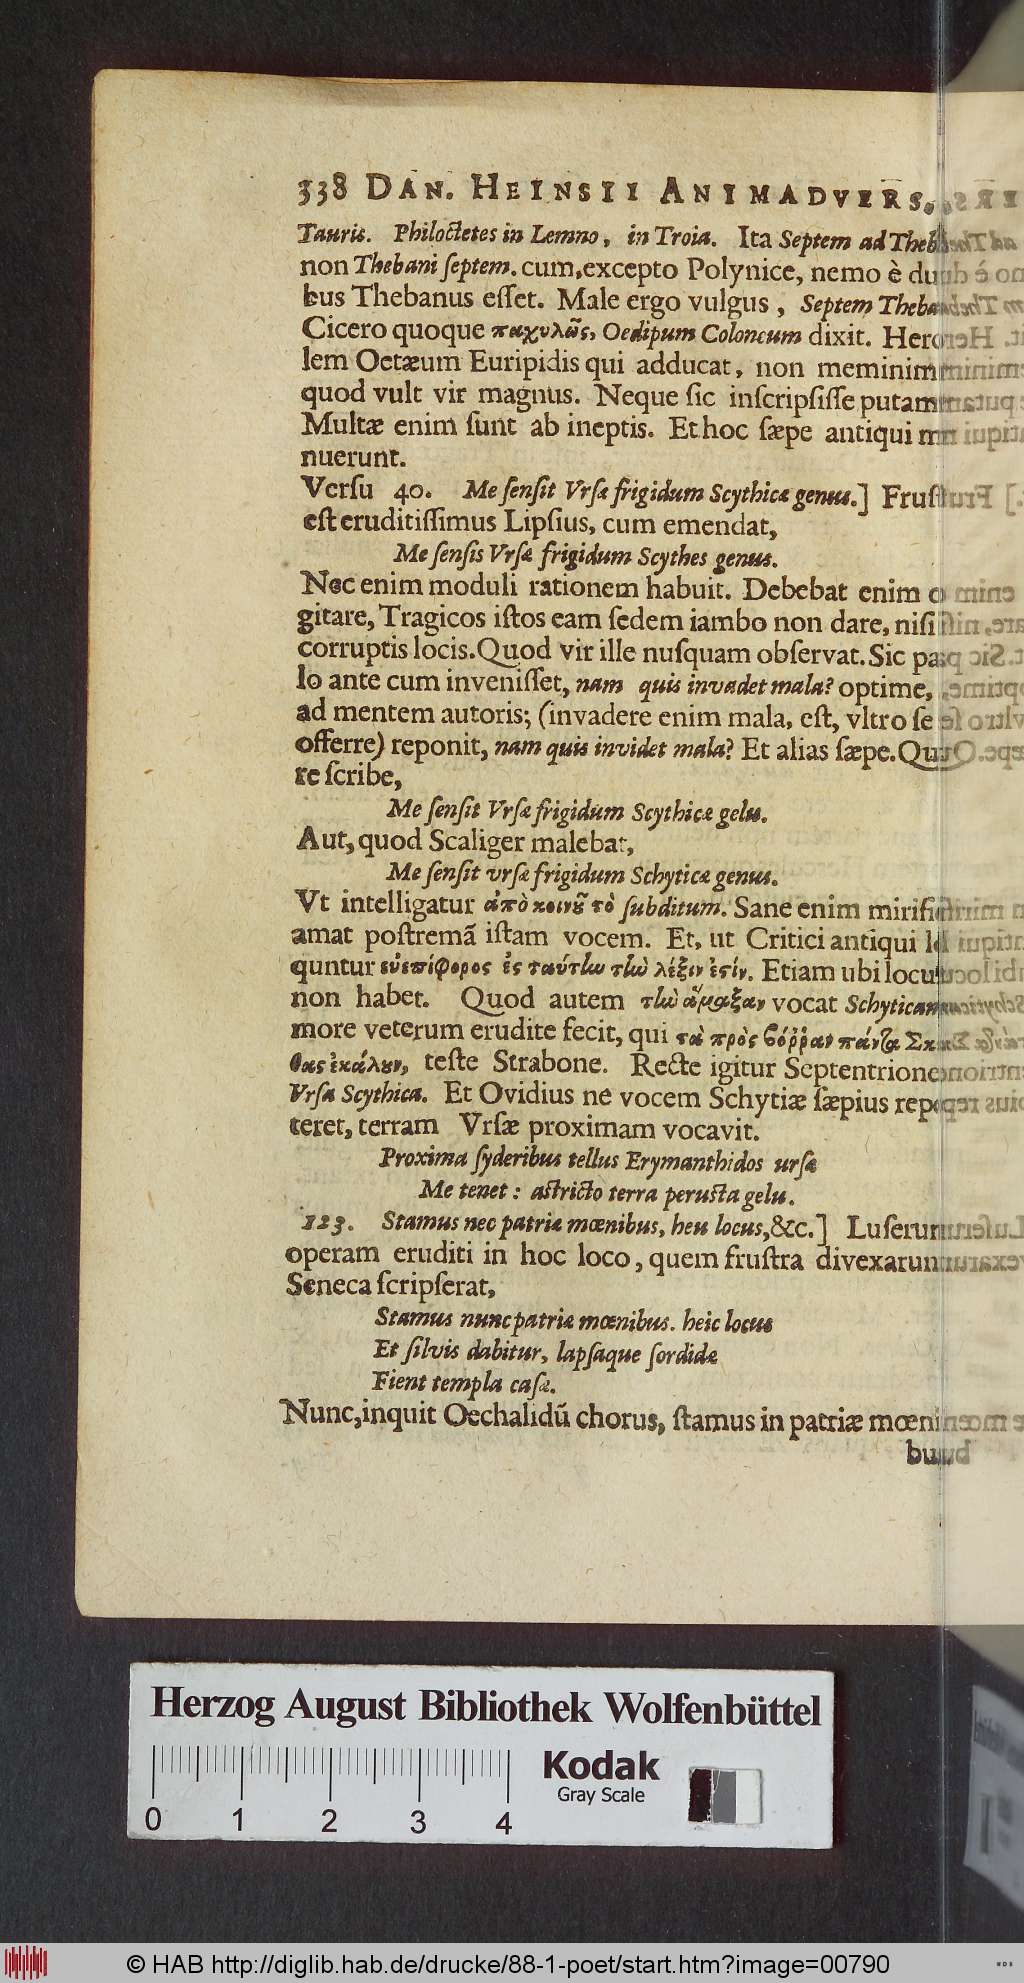 338 DAN. HEINSII ANIMADVERS.
Tauris. Philoctetes in Lemno, in Troia. Ita Septem ad Theb
non Thebani ſeptem. cum, excepto Polynice, nemo è du
bus Thebanus eſſet. Male ergo vulgus, Septem Theba
Cicero quoque παχυλῶς, Oedipum Coloneum dixit. Herc
lem Oetæum Euripidis qui adducat, non memini
quod vult vir magnus. Neque ſic inſcripſiſſe putam
Multæ enim ſunt ab ineptis. Et hoc ſæpe antiqui m
nuerunt.
Verſu 40. Me ſenſit Vrſæ frigidum Scythicæ genus.] Fruſt
eſt eruditiſſimus Lipſius, cum emendat,
Me ſenſis Vrſæ frigidum Scythes genus.
Nec enim moduli rationem habuit. Debebat enim co
gitare, Tragicos iſtos eam ſedem iambo non dare, niſi
corruptis locis. Quod vir ille nuſquam obſervat. Sic pa
lo ante cum inveniſſet, nam quis invadet mala? optime,
ad mentem autoris; (invadere enim mala, eſt, vltro ſe
offerre) reponit, nam quis invidet mala? Et alias ſæpe. Qua
re ſcribe,
Me ſenſit Vrſæ frigidum Scythicæ gelu.
Aut, quod Scaliger malebat,
Me ſenſit vrſæ frigidum Schyticæ genus.
Vt intelligatur ἀπὸ κοινȣ͂ τὸ ſubditum. Sane enim mirifi
amat poſtremã iſtam vocem. Et, ut Critici antiqui lo
quntur εὐεπίφορος ἐς ταύτω τω λέξιν ἐςίν. Etiam ubi locu
non habet. Quod autem τω ἅμαξαν vocat Schytican
more veterum erudite fecit, qui τὰ πρὸς βόῤῥαν πάντα Σκυ
θας ἐκάλȣν, teſte Strabone. Recte igitur Septentrione
Vrſa Scythica. Et Ovidius ne vocem Schytiæ ſæpius repe
teret, terram Vrſæ proximam vocavit.
Proxima ſyderibus tellus Erymanthidos urſæ
Me tenet: aſtricto terra peruſta gelu.
123. Stamus nec patriæ mœnibus, heu locus, &c.] Luſerun
operam eruditi in hoc loco, quem fruſtra divexarun
Seneca ſcripſerat,
Stamus nunc patriæ mœnibus. heic locus
Et ſilvis dabitur, lapſaque ſordidæ
Fient templa caſæ.
Nunc, inquit Oechalidũ chorus, ſtamus in patriæ mœni
bus
Herzog August Bibliothek Wolfenbüttel
Kodak
Gray Scale
0 1 2 3 4
© HAB http://diglib.hab.de/drucke/88-1-poet/start.htm?image=00790